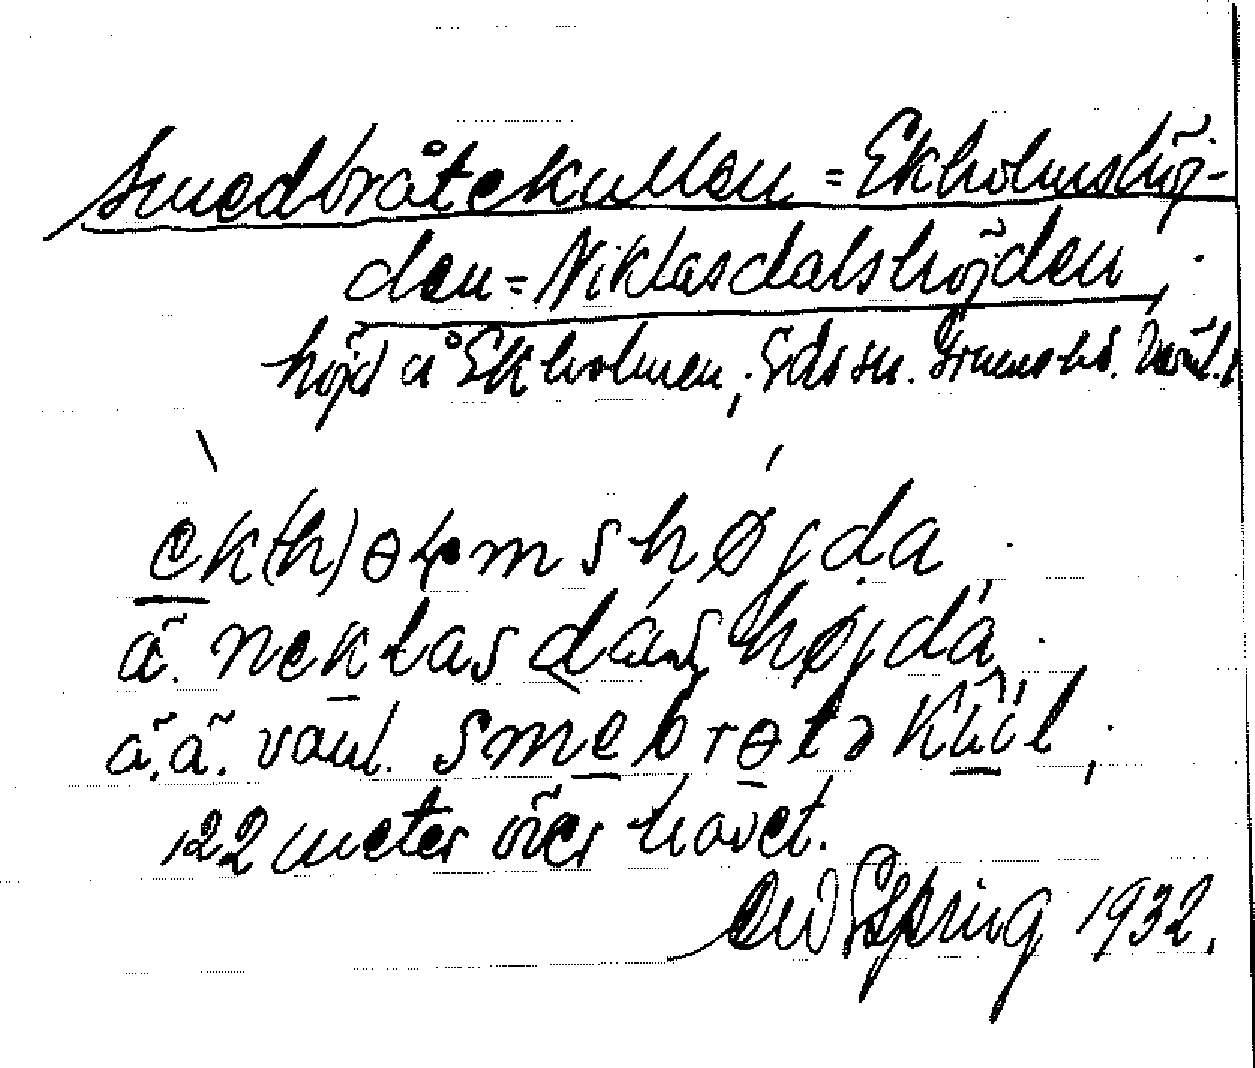 Smedbråtekullen = Ekholmshöj-
den = Niklasdalshöjden,
höjd å Ekholmen, Eds sn. Grums hd. Värml.
ek(h)ɵɽmshøjda
ä. neklasdášhøjda
ä.ä. vanl. smebrɵtəkul,
122 meter över havet.
Spring 1932.